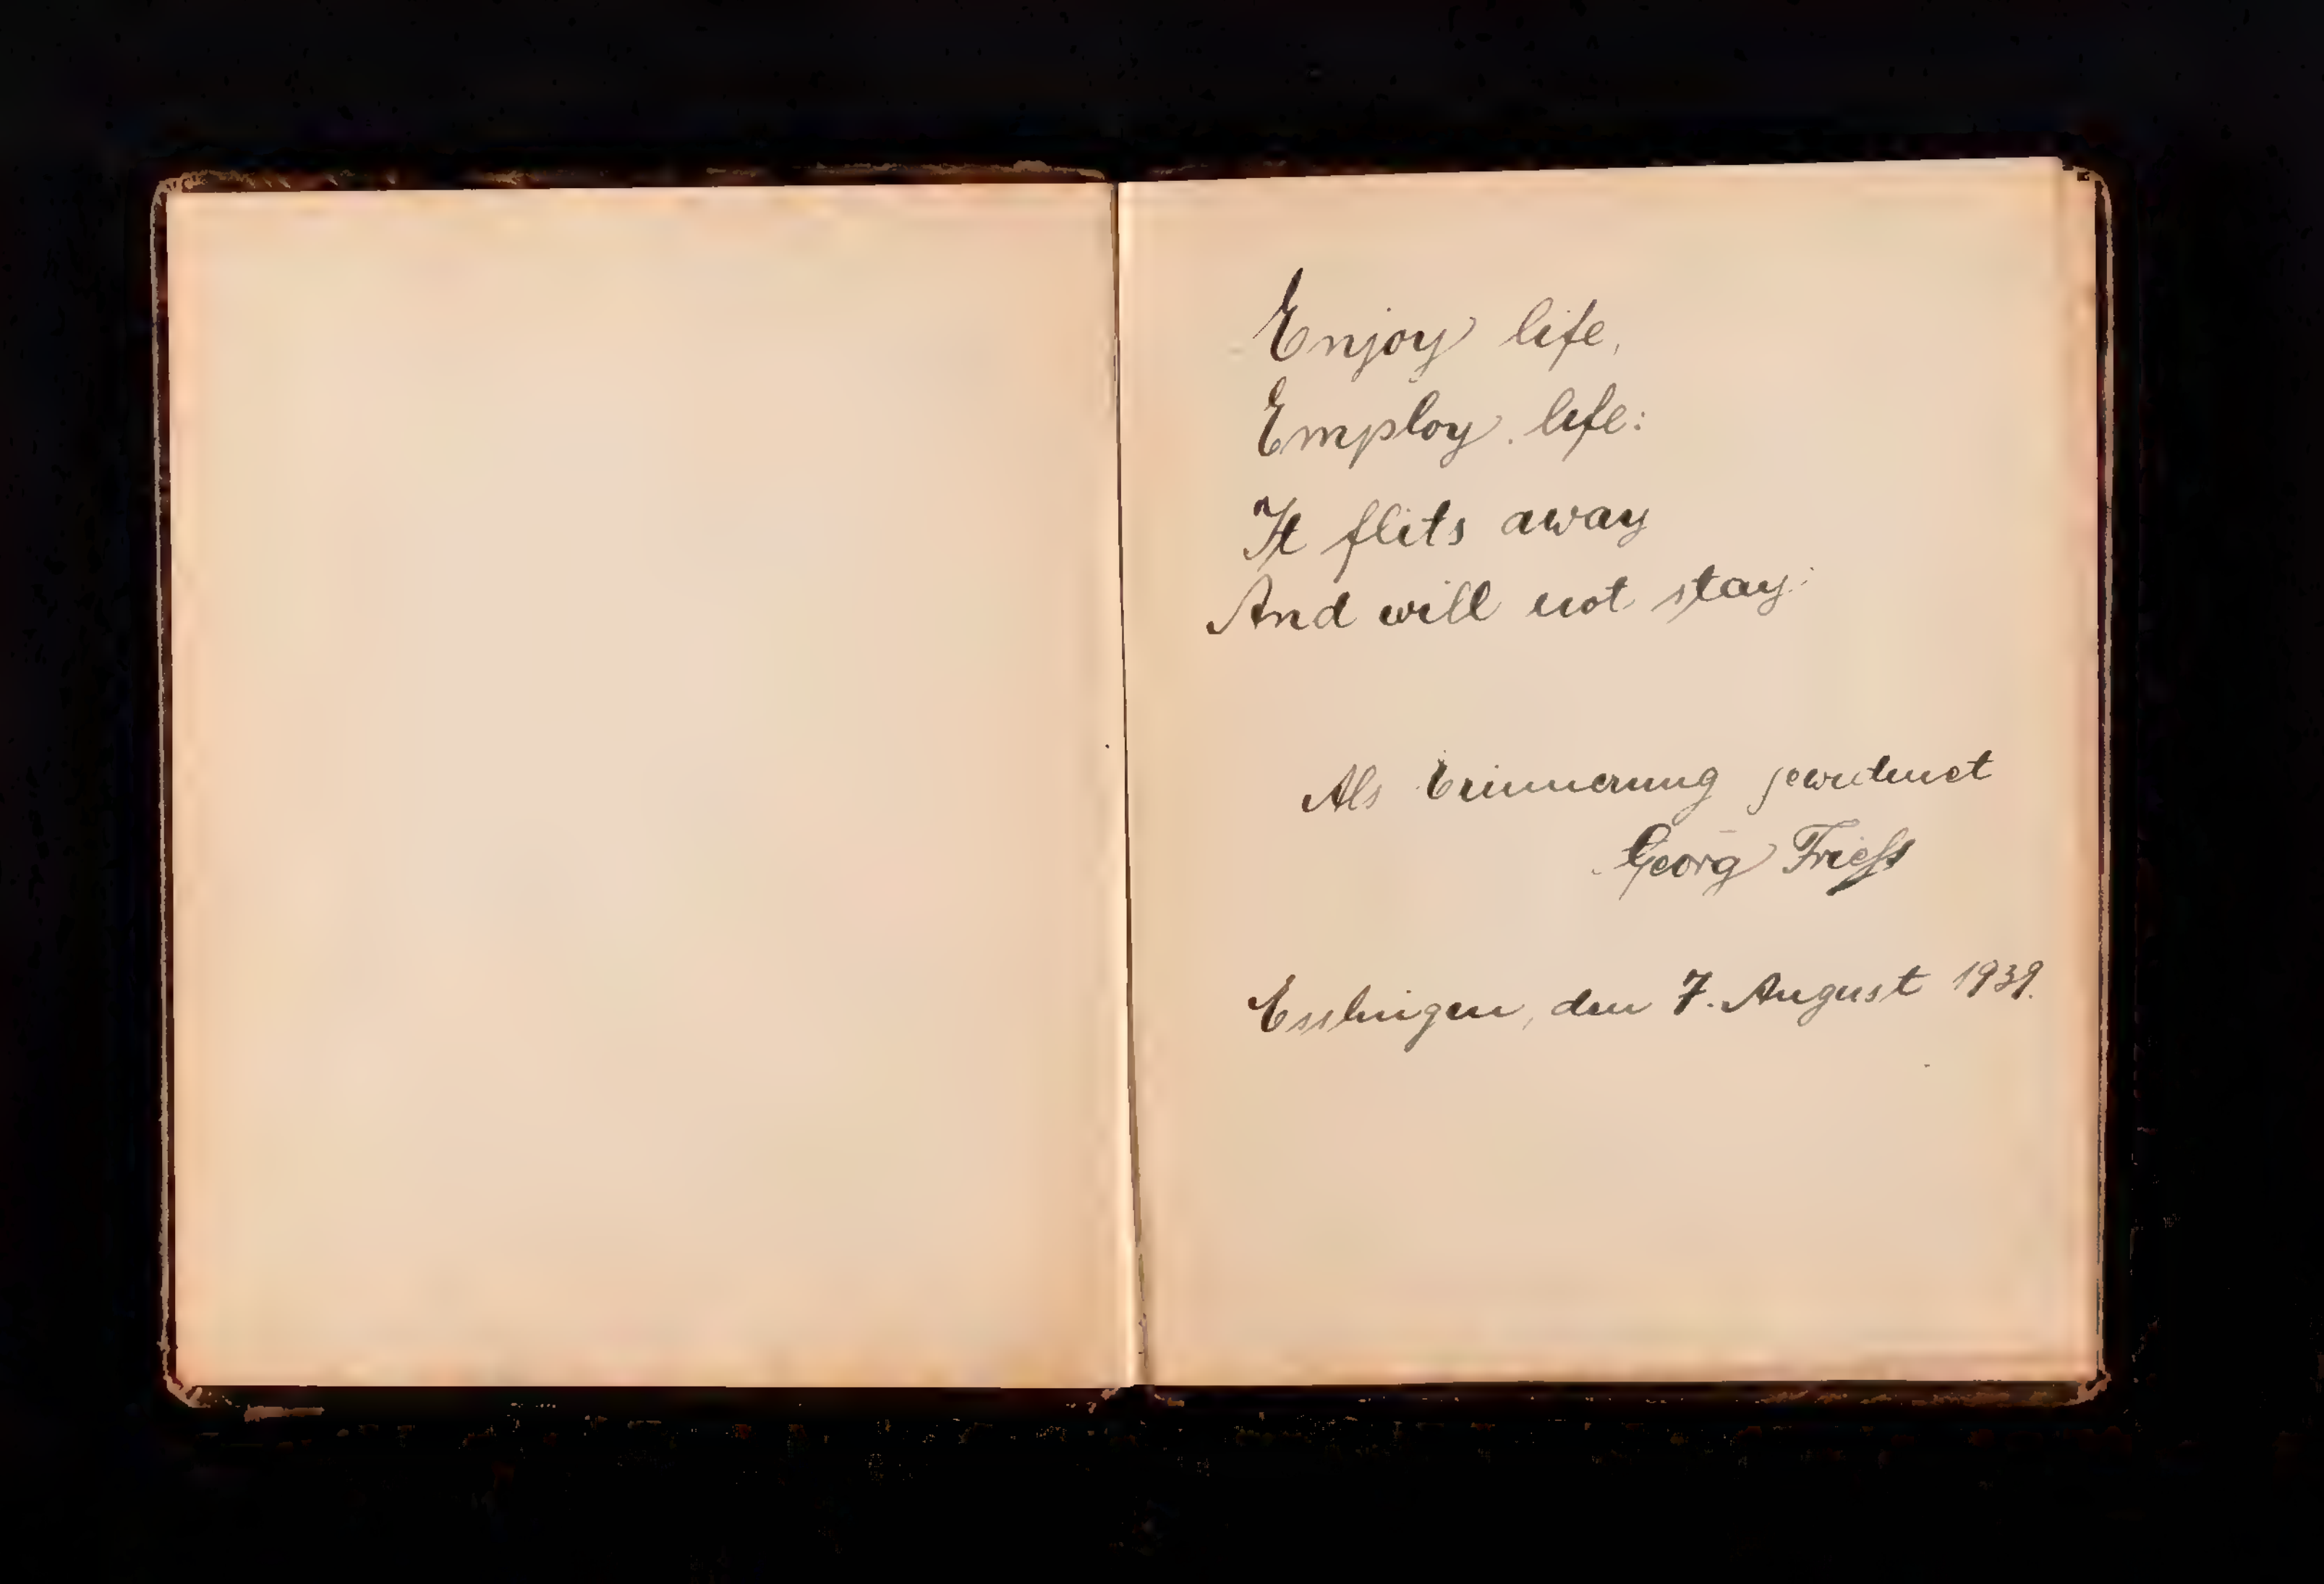 Enjoy life,
Employ life:
It flits away
And will not stay.
Als Erinnerung gewidmet
Georg Frieß
Esslingen, den 7. August 1939.